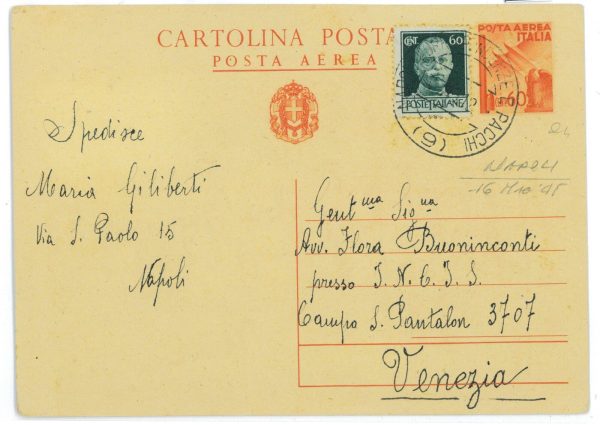 CARTOLINA POSTA
POSTA AEREA
POSTA AEREA
ITALIA
60
CENT. 60
POSTE ITALIANE
PACCHI
(6)
NAPOLI
Spedisce
Maria Giliberti
Via S. Paolo 15
Napoli
Gent ma Sig na
Avv. Flora Buoninconti
presso I. N. G. I. S.
Campo S. Pantalon 3707
Venezia